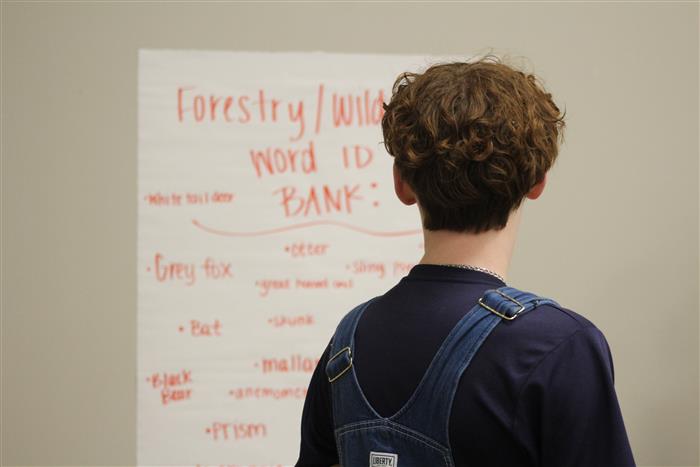 Forestry/Wild
Word ID
BANK:
•White tail deer
•otter
•Grey fox
•great horned owl
•sling
•Bat
•skunk
•mallar
•Black
Bear
•anemome
•Prism
LIBERTY